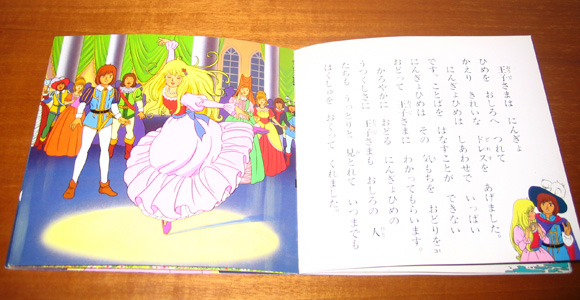 王子さまは にんぎょ
ひめを おしろへ つれて
かえり きれいな ドレスを あげました。
にんぎょひめは しあわせで いっぱい
です。ことばを はなすことが できない
にんぎょひめは その 気もちを おどりを
おどって 王子さまに わかってもらいます。
かろやかに おどる にんぎょひめの
うつくしさに 王子さまも おしろの 人
たちも 見とれて いつまでも
はくしゅを おくって くれました。